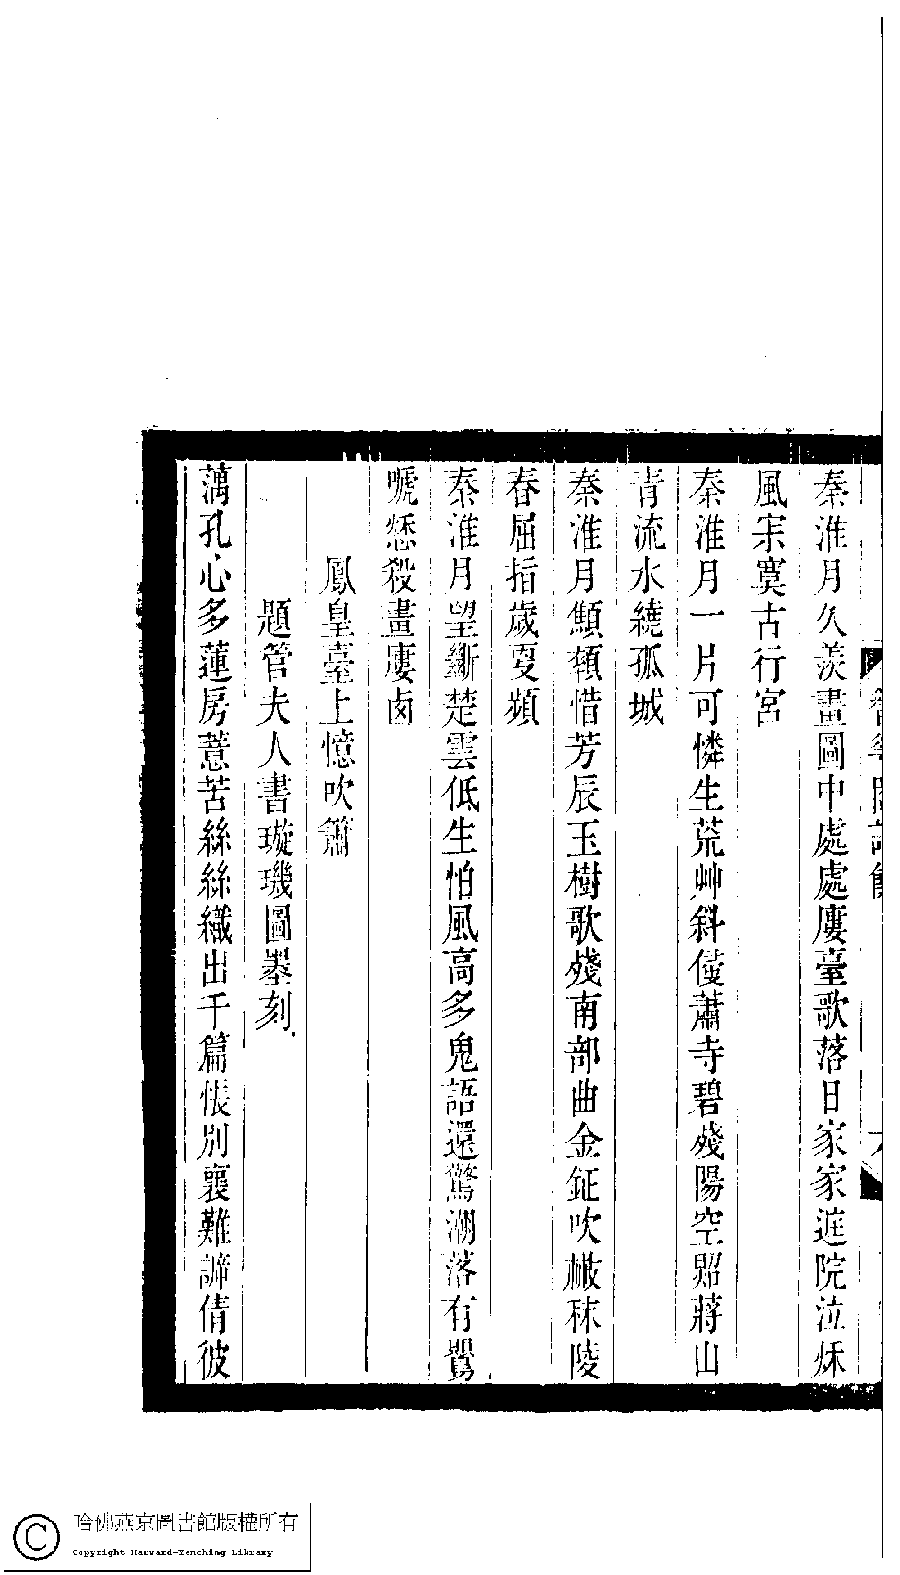 秦淮月久羨畫圖中處處廔臺歌落日家家庭院泣秌
風宋寞古行宮
秦淮月一片可憐生荒艸斜侵蕭寺碧殘陽空照蔣山
青流水繞孤城
秦淮月顦顇惜芳辰玉樹歌殘南部曲金鉦吹樧秣陵
春屈指歲夏頻
秦淮月望斷楚雲低生怕風高多鬼語還驚潮落有鸎
嗁愁殺畫廔卤
鳳皇臺上憶吹簫
題管夫人書璇璣圖墨刻
藕孔心多蓮房薏苦絲絲織出千篇悵別襄難諦倩彼
哈佛燕京圖書館版權所有
Copyright Harvard-Yenching Library